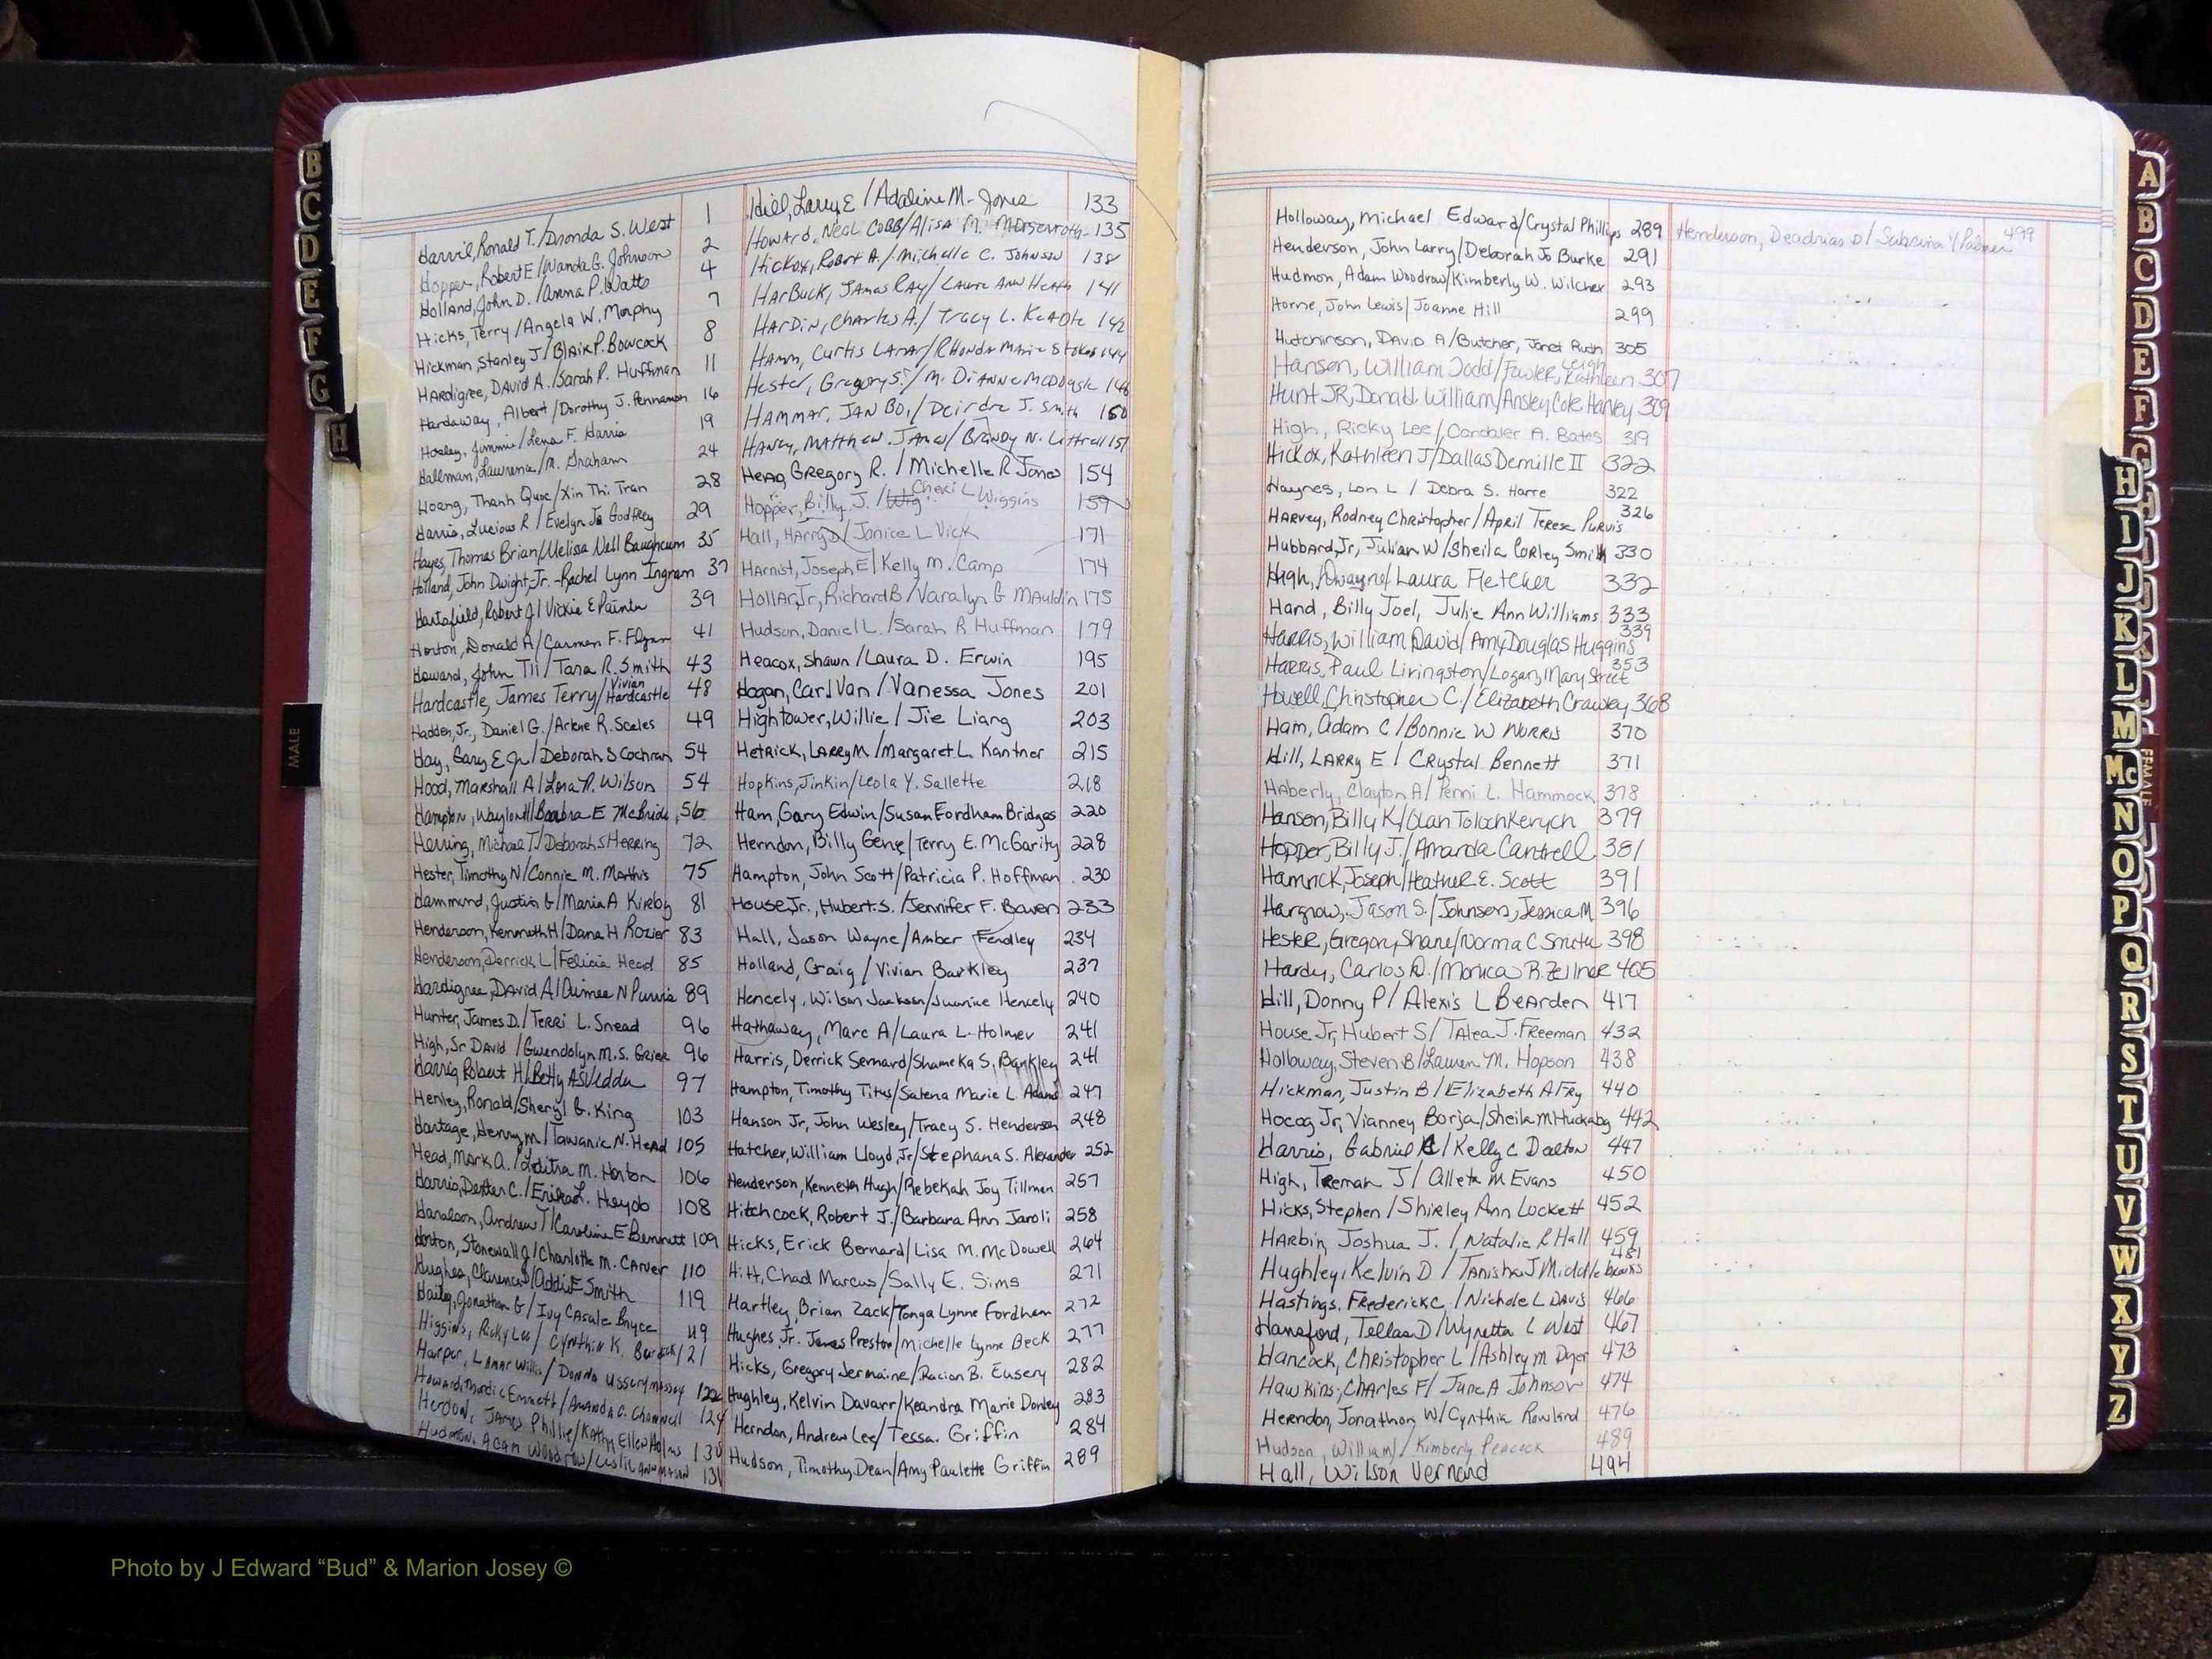 B
C
D
E
F
G
H
MALE
Harvil, Ronald T./Dronda S. West 1
Hopper, Robert E/Wanda G. Johnson 2
Holland, John D./Anna P. Watts 4
Hicks, Terry/Angela W. Morphy 7
Hickman, Stanley J/Blair P. Bowcock 8
Hardigree, David A./Sarah P. Huffman 11
Hardaway, Albert/Dorothy J. Pennamon 16
Hosley, Jimmie/Lena F. Harris 19
Hallman, Lawrence/N. Graham 24
Hoang, Thanh Quoc/Xin Thi Tran 28
Harris, Lucious R/Evelyn Jo Godfrey 29
Hayes, Thomas Brian/Melissa Nell Baughcum 35
Holland, John Dwight, Jr.-Rachel Lynn Ingram 37
Hartsfield, Robert J/Vickie E Painter 39
Horton, Donald A/Carmen F. Flynn 41
Howard, John Til/Tara R. Smith 43
Hardcastle, James Terry/Vivian Hardcastle 48
Hadden, Jr., Daniel G./Arlene R. Scales 49
Hay, Gary E Jr/Deborah S Cochran 54
Hood, Marshall A/Lena R. Wilson 54
Hampton, Waylon/Barbra E McBride 56
Herring, Michael T./Deborah S Herring 72
Hester, Timothy N/Connie M. Mathis 75
Hammond, Justin G/Maria A Kirby 81
Henderson, Kenneth H/Dana H Rozier 83
Henderson, Derrick L/Felicia Head 85
Hardigree, David A/Aimee N Purvis 89
Hunter, James D./Terri L. Snead 96
High, Sr David/Gwendolyn M.S. Grier 96
Harris, Robert H/Betty A 97
Henley, Ronald/Sheryl G. King 103
Hartage, Henry M/Tawanie N. Head 105
Head, Mark A./Letitha M. Horton 106
Harris, Dexter C./Erika L. Heyob 108
Haralson, Andrew T/Caroline E Bennett 109
Horton, Stonewall J/Charlotte M. Carver 110
Hughes, Clarence D/Addie E Smith
Haily, Jonathan G/Ivy Casale Bryce 119
Higgins, Ricky Lee/Cynthia K. 119
Harper, Lamar Willis/Donna Ussery Massey 121
Howard, Emmett/Amanda C. 122
Herdon, James Phillip/Kathy Ellen 124
Hudmon, Adam Woodrow/Leslie Ann Mason 131
Hill, Larry E/Adaline M. Jones 133
Howard, Neal Cobb/Alisa M. 135
Hickox, Robert A./Michelle C. Johnson 138
Harbuck, James Ray/Laura Ann Heath 141
Hardin, Charles A./Tracy L. Keadle 142
Hamm, Curtis Lamar/Rhonda Marie Stokes 144
Hester, Gregory S./M. Dianne McDougle 146
Hammar, Jan Bo,/Deirdre J. Smith 150
Haney, Matthew James/Brandy N. Littrell 151
Head, Gregory R./Michelle R Jones 154
Hopper, Billy J./Cheri L Wiggins 159
Hall, Harry D/Janice L Vick 171
Harnist, Joseph E/Kelly M. Camp 174
Hollar, Jr, Richard B/Varalyn G Mauldin 175
Hudson, Daniel L./Sarah R Huffman 179
Heacox, Shawn/Laura D. Erwin 195
Hogan, Carl Van/Vanessa Jones 201
Hightower, Willie/Jie Liang 203
Hetrick, Larry M/Margaret L. Kantner 215
Hopkins, Jinkin/Leola Y. Sallette 218
Ham, Gary Edwin/Susan Fordham Bridges 220
Herndon, Billy Gene/Terry E. McGarity 228
Hampton, John Scott/Patricia P. Hoffman 230
House Jr., Hubert S./Jennifer F. Bowen 233
Hall, Jason Wayne/Amber Fendley 234
Holland, Craig/Vivian Barkley 237
Hencely, Wilson Jackson/Juanice Hencely 240
Hathaway, Marc A/Laura L. Holmer 241
Harris, Derrick Sernard/Shameka S. Barkley 241
Hampton, Timothy Titus/Satena Marie L. Adams 247
Hanson Jr, John Wesley/Tracy S. Henderson 248
Hatcher, William Lloyd, Jr/Stephana S. Alexander 252
Henderson, Kenneth Hugh/Rebekah Joy Tillman 257
Hitchcock, Robert J./Barbara Ann Jaroli 258
Hicks, Erick Bernard/Lisa M. McDowell 264
Hitt, Chad Marcus/Sally E. Sims 271
Hartley, Brian Zack/Tonga Lynne Fordham 272
Hughes Jr. James Preston/Michelle Lynne Beck 277
Hicks, Gregory Jermaine/Racion B. Eusery 282
Hughley, Kelvin Davarr/Keandra Marie Donley 283
Herndon, Andrew Lee/Tessa. Griffin 284
Hudson, Timothy Dean/Amy Paulette Griffin 289
Holloway, Michael Edward/Crystal Phillips 289
Henderson, John Larry/Deborah Jo Burke 291
Hudmon, Adam Woodrow/Kimberly W. Wilcher 293
Horne, John Lewis/Joanne Hill 299
Hutchinson, David A/Butcher, Janet Ruth 305
Hansen, William Todd/Fowler, Kathleen Leigh 307
Hunt JR, Donald William/Ansley Cole Harvey 309
High, Ricky Lee/Candaler A. Bates 319
Hickox, Kathleen J/Dallas Demille II 322
Haynes, Lon L/Debra S. Harre 322
Harvey, Rodney Christopher/April Terese Purvis 326
Hubbard, Jr, Julian W/Sheila Corley Smith 330
High, Dwayne/Laura Fletcher 332
Hand, Billy Joel, Julie Ann Williams 333
Harris, William David/Amy Douglas Huggins 339
Harris, Paul Livingston/Logan, Mary Street 353
Howell, Christopher C./Elizabeth Crawley 368
Ham, Adam C/Bonnie W Norris 370
Hill, Larry E/Crystal Bennett 371
Haberly, Clayton A/Penni L. Hammock 378
Hanson, Billy K/Olan Tolochkerych 379
Hopper, Billy J./Amanda Cantrell 381
Hamrick, Joseph/Heather E. Scott 391
Hargrow, Jason S./Johnson, Jessica M 396
Hester, Gregory Shane/Norma C Smith 398
Hardy, Carlos D./Monica R. Zellner 405
Hill, Donny P/Alexis L Bearden 417
House Jr, Hubert S/Talea J. Freeman 432
Holloway, Steven B/Lauren M. Hopson 438
Hickman, Justin B/Elizabeth A Fry 440
Hocog Jr, Vianney Borja/Sheila M Huckaby 442
Harris, Gabriel/Kelly C Dalton 447
High, Treman J/Alleta M Evans 450
Hicks, Stephen/Shirley Ann Lockett 452
Harbin, Joshua J./Natalie R Hall 459
Hughley, Kelvin D/Tanisha J Middlebrooks 481
Hastings, Frederick C./Nichole L Davis 466
Hansford, Tellas D/Wynetta L West 467
Hancock, Christopher L/Ashley M Dyer 473
Hawkins, Charles F/June A Johnson 474
Herndon, Jonathon W/Cynthia Rowland 476
Hudson, William/Kimberly Peacock 489
Hall, Wilson Vernard 494
Henderson, Deadrias D/Sabrina Y Palmer 499
A
B
C
D
E
F
G
H
I
J
K
L
M
Mc
N
O
P
Q
R
S
T
U
V
W
X
Y
Z
FEMALE
Photo by J Edward “Bud” & Marion Josey ©